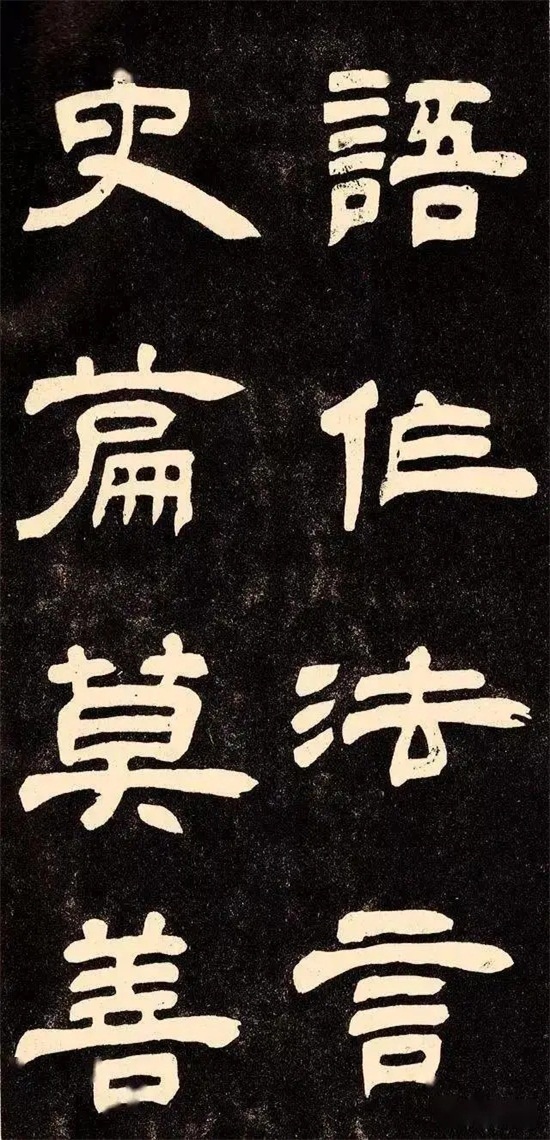 語作法言
史篇莫善